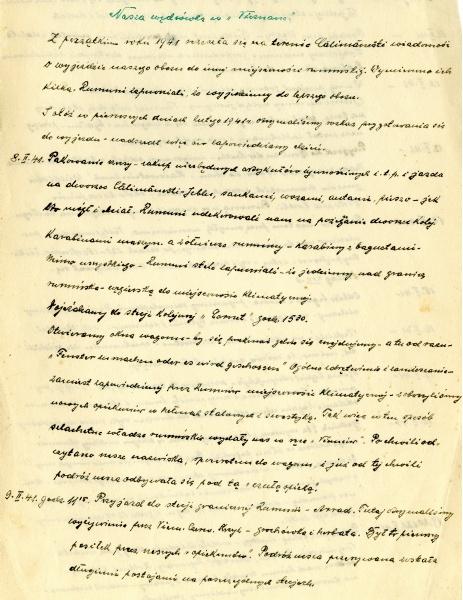 Nasza wędrówka w "Nieznane"
Z początkiem roku 1941 rozeszła się na terenie Călimănești wiadomość
o wyjeździe naszego obozu do innej miejscowości rumuńskiej. Wymieniano ich
kilka. Rumuni zapewniali, że wyjedziemy do lepszego obozu.
I otóż w pierwszych dniach lutego 1941r. otrzymaliśmy rozkaz przygotowania się
do wyjazdu - nadszedł więc ów zapowiedziany dzień.
8.II.41. Pakowanie rzeczy - zakup niezbędnych artykułów żywnościowych i t.p. i jazda
na dworzec Călimănești-Jeblea, saniami, wozami, autami, pieszo - jak
kto mógł i chciał. Rumuni udekorowali nam na pożegnanie dworzec kolej.
karabinami maszyn. a żołnierze rumuńscy - karabiny z bagnetami -
Mimo wszystkiego - Rumuni stale zapewniali - że jedziemy nad granicę
rumuńsko-węgierską do miejscowości klimatycznej.
Wjeżdżamy do stacji kolejowej "Cornet" godz. 15.30.
Otwieramy okna wagonów - by się przekonać gdzie się znajdujemy - a tu od razu -
"Fenster zu machen oder es wird geschossen" Ogólne zdziwienie i
zamiast zapowiedzianej przez Rumunów miejscowości klimatycznej - zobaczyliśmy
nowych opiekunów w hełmach stalowych i swastyką. Tak więc w ten sposób
szlachetne władze rumuńskie wydały nas w ręce "Niemców". Po chwili od-
czytano nasze nazwiska, spowrotem do wagonu, i już od tej chwili
podróż nasza odbywała się pod tą "czułą opieką!
9.II.41. godz. 11.15. Przyjazd do stacji granicznej Rumunii - Arad. Tutaj otrzymaliśmy
wyżywienie przez Niem. Czerw. Krzyż - grochówka i herbata. Był to pierwszy
posiłek przez naszych "opiekunów". Podróż nasza przerywana została
długimi postojami na poszczególnych stacjach.